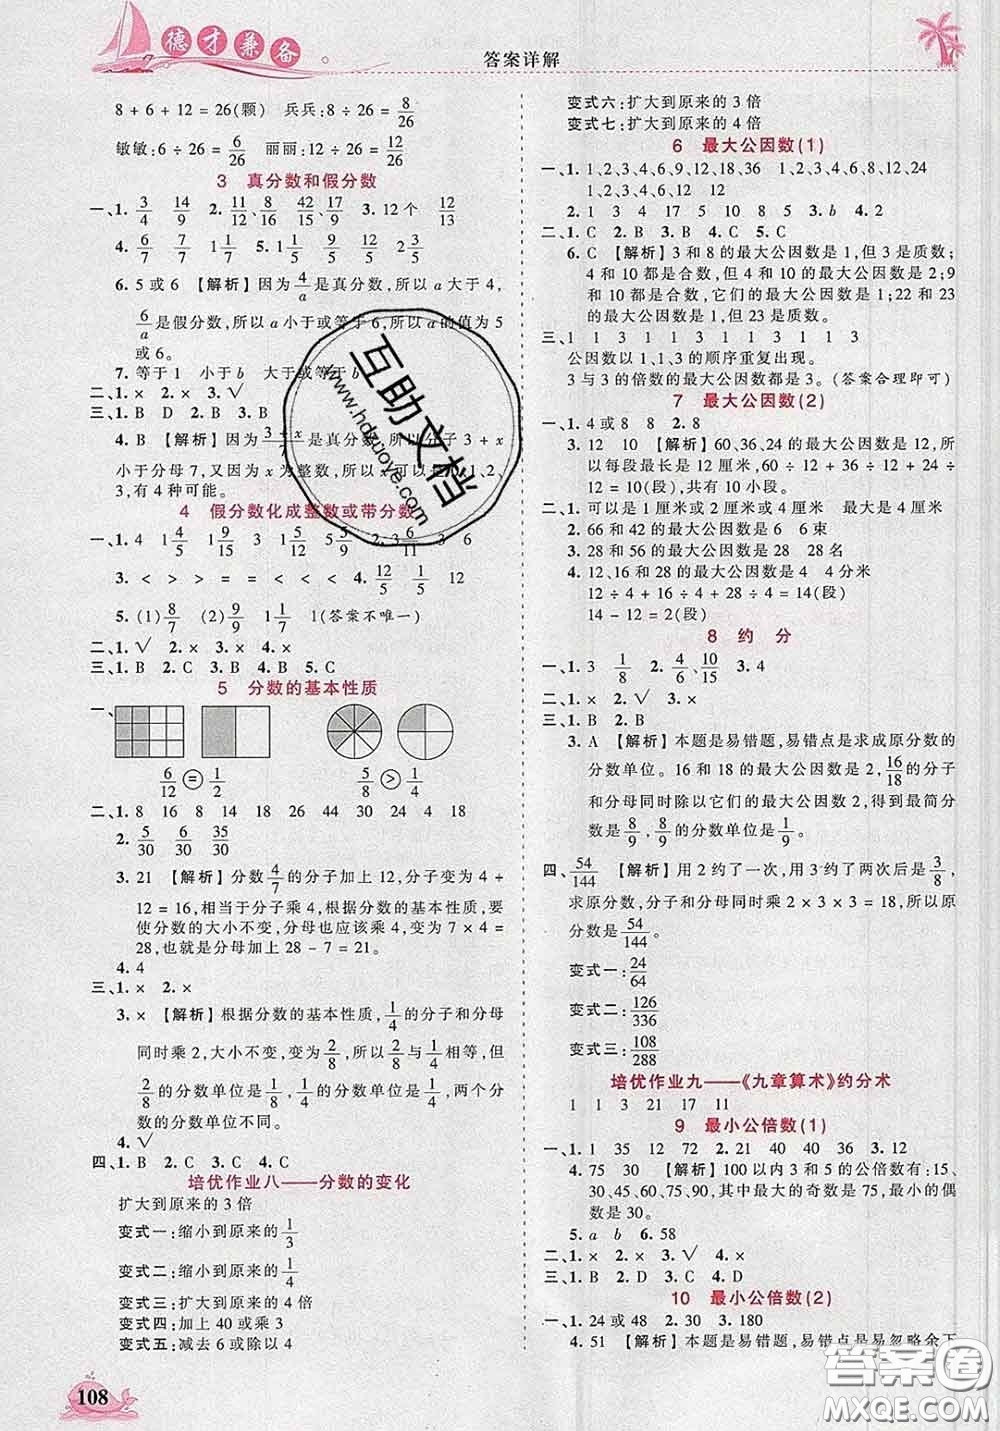 德才兼备
答案详解
8 + 6 + 12 = 26(颗) 兵兵:8 ÷ 26 = 8/26
敏敏:6 ÷ 26 = 6/26 丽丽:12 ÷ 26 = 12/26
3 真分数和假分数
一、1. 3/4 14/9 2. 11/12、8/16 42/15、17/9 3. 12个 12/13
4. 6/7 7/7 1 1/7 5. 1 1/4 1 5/12 2 3/4
6. 5或6 【解析】因为4/a是真分数,所以 a 大于 4,
6/a是假分数,所以 a 小于或等于 6,所以 a 的值为 5
或 6。
7. 等于 1 小于 b 大于或等于 b
二、1. × 2. × 3. √
三、1. B D 2. B 3. B
4. B 【解析】因为(3+x)/7是真分数,所以分子 3 + x
小于分母 7,又因为 x 为整数,所以 x 可以是 0、1、2、
3,有 4 种可能。
4 假分数化成整数或带分数
一、1. 4 1 4/5 1 9/15 3 1 5/12 5 2. 3 6/11 3 6
3. < < > > = < = > 4. 12/5 12/5 12
5. (1) 8/7 (2) 9/9 1 1/7 1(答案不唯一)
二、1. √ 2. × 3. ×
三、1. B 2. C 3. B 4. B 5. C
5 分数的基本性质
一、
6/12 = 1/2 5/8 > 1/4
二、1. 8 16 8 14 18 24 44 24 4 18
2. 5/30 6/30
3. 21 【解析】分数4/7的分子加上 12,分子变为 4 +
12 = 16,相当于分子乘 4,根据分数的基本性质,要
使分数的大小不变,分母也应该乘 4,变为 7 × 4 =
28,也就是分母加上 28 - 7 = 21。
4. 4
三、1. × 2. ×
3. × 【解析】根据分数的基本性质,1/4的分子和分母
同时乘 2,大小不变,变为2/8,所以2/8与1/4相等,但是
2/8的分数单位是1/8,1/4的分数单位是1/4,所以两个分
数的分数单位不同。
4. √
四、1. B 2. C 3. C 4. B
培优作业八——分数的变化
扩大到原来的 3 倍
变式一:缩小到原来的1/3
变式二:缩小到原来的1/4
变式三:扩大到原来的 4 倍
变式四:加上 40 或乘 3
变式五:减去 6 或除以 4
108
变式六:扩大到原来的 3 倍
变式七:扩大到原来的 4 倍
6 最大公因数(1)
一、1. 1、2、3、4、6、9、12、18、36 1、2、3、4、6、8、12、24
1、2、3、4、6、12 12
2. 1 3 4 15 10 8 5 3. b 4. 2
二、1. C 2. B 3. B 4. C 5. C
6. C 【解析】3 和 8 的最大公因数是 1,但 3 是质数;
4 和 10 都是合数,但 4 和 10 的最大公因数是 2;9
和 10 都是合数,它们的最大公因数是 1;22 和 23
的最大公因数是 1,但 23 是质数。
三、1 1 3 1 1 3 1 1 3 1 1 3
公因数以 1、1、3 的顺序重复出现。
3 与 3 的倍数的最大公因数都是 3。(答案合理即可)
7 最大公因数(2)
一、1. 4 或 8 8 2. 8
3. 12 10 【解析】60、36、24 的最大公因数是 12,所
以每段最长是 12 厘米,60 ÷ 12 + 36 ÷ 12 + 24 ÷
12 = 10(段),共有 10 小段。
二、1. 可以是 1 厘米或 2 厘米或 4 厘米 最大是 4 厘米
2. 66 和 42 的最大公因数是 6 6 束
3. 28 和 56 的最大公因数是 28 28 名
4. 12、16 和 28 的最大公因数是 4 4 分米
12 ÷ 4 + 16 ÷ 4 + 28 ÷ 4 = 14(段)
14 - 12 = 2(段)
8 约 分
一、1. 3 1/8 2. 4/6、10/15 3. 4
二、1. × 2. × 3. √
三、1. B 2. B
3. A 【解析】本题是易错题,易错点是求成原分数的
分数单位。16 和 18 的最大公因数是 2,16/18的分子
和分母同时除以它们的最大公因数 2,得到最简分
数是8/9,8/9的分数单位是1/9。
四、54/144 【解析】用 2 约了一次,用 3 约了两次后是3/8,
求原分数,分子和分母同时乘 2 × 3 × 3 = 18,所以原
分数是54/144。
变式一:24/64
变式二:126/336
变式三:108/288
培优作业九——《九章算术》约分术
1 1 3 21 17 11
9 最小公倍数(1)
一、1. 1 35 12 72 2. 21 40 40 36 3. 12
4. 75 30 【解析】100 以内 3 和 5 的公倍数有:15、
30、45、60、75、90,其中最大的奇数是 75,最小的偶
数是 30。
5. a b 6. 58
二、1. × 2. × 3. √ 4. ×
三、1. B 2. D 3. C 4. D
10 最小公倍数(2)
一、1. 24 或 48 2. 30 3. 180
4. 51 【解析】本题是易错题,易错点是易忽略余下
互助文档
www.hdzuoye.com
答案卷
MXQE.COM